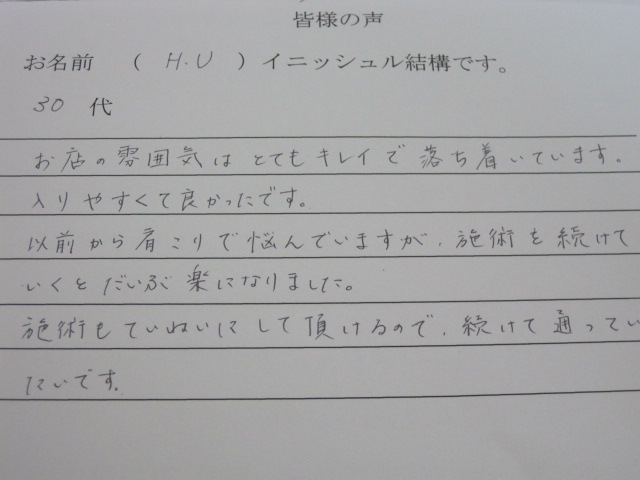 皆様の声
お名前 ( H.U ) イニッシュル結構です。
30 代
お店の雰囲気はとてもキレイで落ち着いています。
入りやすくて良かったです。
以前から肩こりで悩んでいますが、施術を続けて
いくとだいぶ楽になりました。
施術もていねいにして頂けるので、続けて通ってい
たいです。